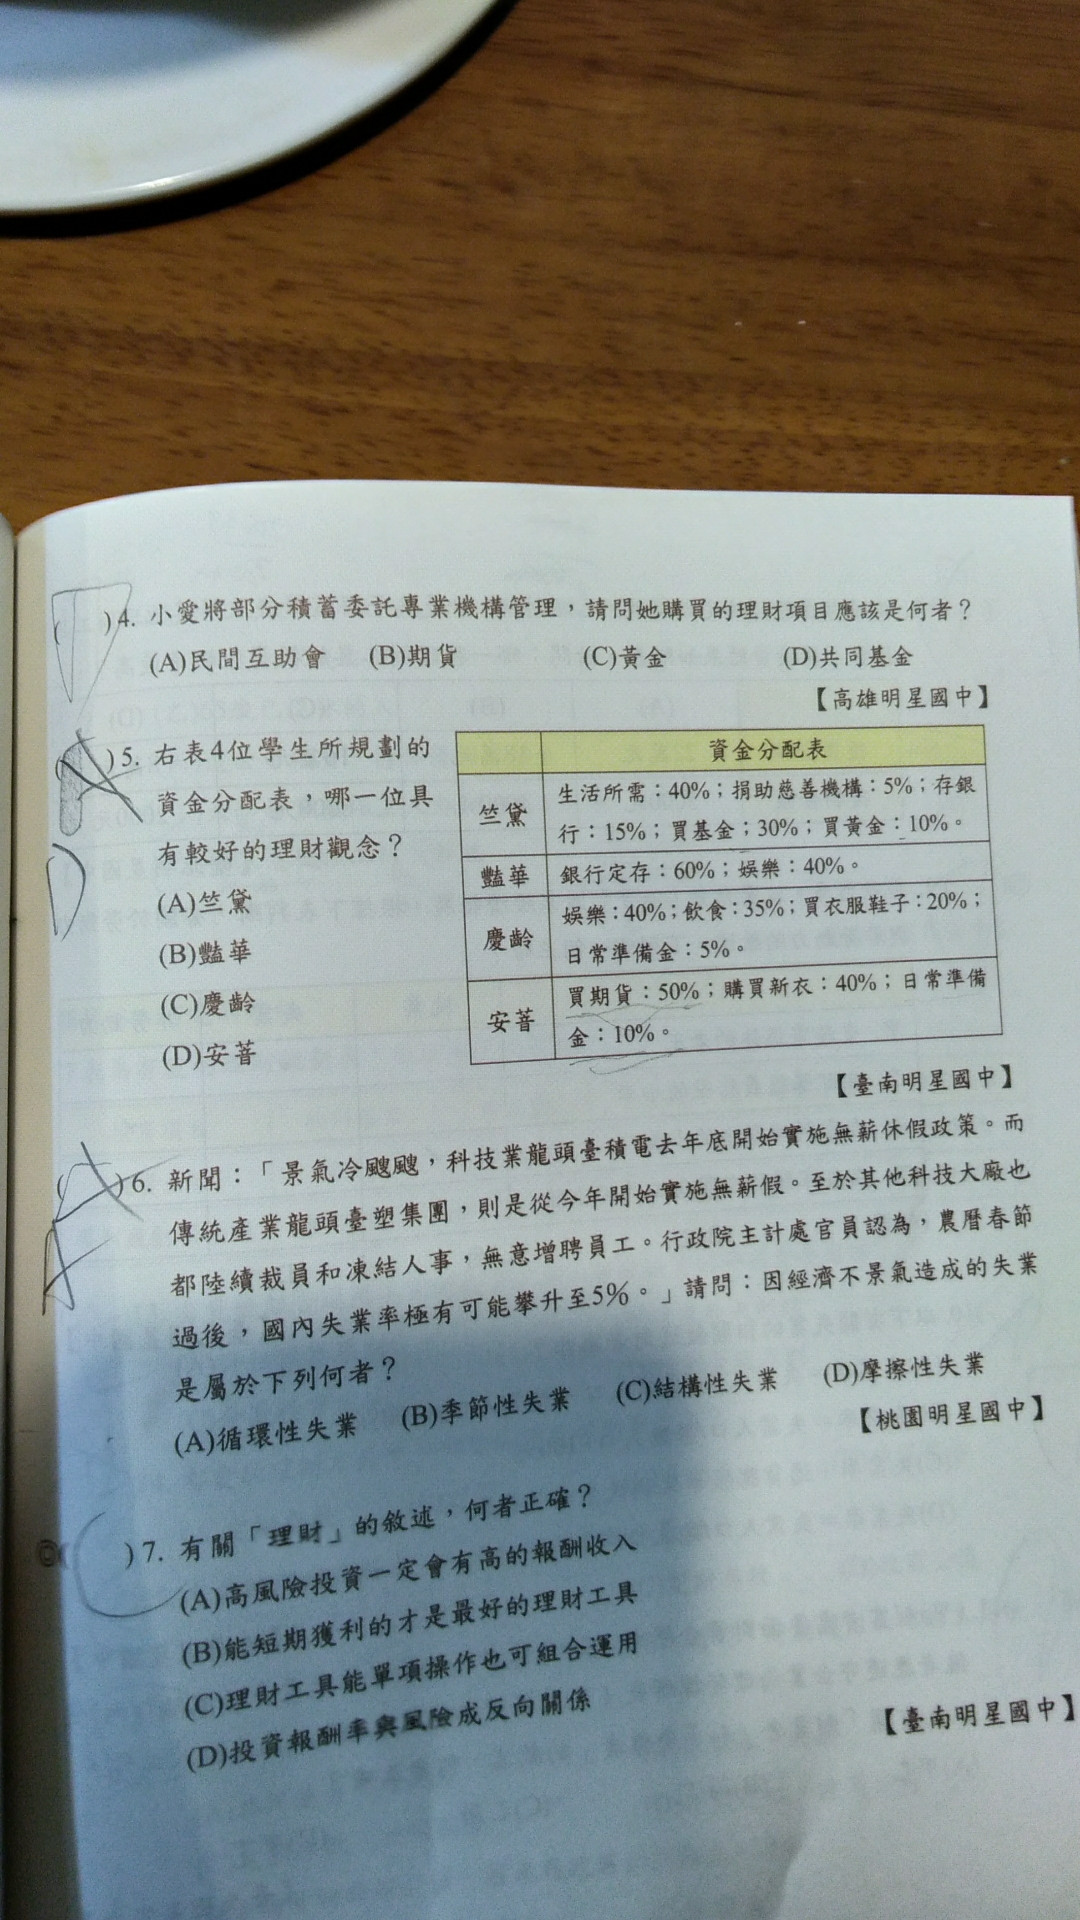 ( )4. 小愛將部分積蓄委託專業機構管理，請問她購買的理財項目應該是何者？
(A)民間互助會 (B)期貨 (C)黃金 (D)共同基金
【高雄明星國中】
(A)5. 右表4位學生所規劃的
資金分配表，哪一位具
有較好的理財觀念？
D
(A)竺黛
(B)豔華
(C)慶齡
(D)安菩
資金分配表
竺黛
生活所需：40%；捐助慈善機構：5%；存銀
行：15%；買基金；30%；買黃金：10%。
豔華
銀行定存：60%；娛樂：40%。
慶齡
娛樂：40%；飲食：35%；買衣服鞋子：20%；
日常準備金：5%。
安菩
買期貨：50%；購買新衣：40%；日常準備
金：10%。
【臺南明星國中】
( )6. 新聞：「景氣冷颼颼，科技業龍頭臺積電去年底開始實施無薪休假政策。而
傳統產業龍頭臺塑集團，則是從今年開始實施無薪假。至於其他科技大廠也
A
都陸續裁員和凍結人事，無意增聘員工。行政院主計處官員認為，農曆春節
過後，國內失業率極有可能攀升至5%。」請問：因經濟不景氣造成的失業
是屬於下列何者？
(A)循環性失業 (B)季節性失業 (C)結構性失業 (D)摩擦性失業
【桃園明星國中】
◎(C)7. 有關「理財」的敘述，何者正確？
(A)高風險投資一定會有高的報酬收入
(B)能短期獲利的才是最好的理財工具
(C)理財工具能單項操作也可組合運用
(D)投資報酬率與風險成反向關係
【臺南明星國中】